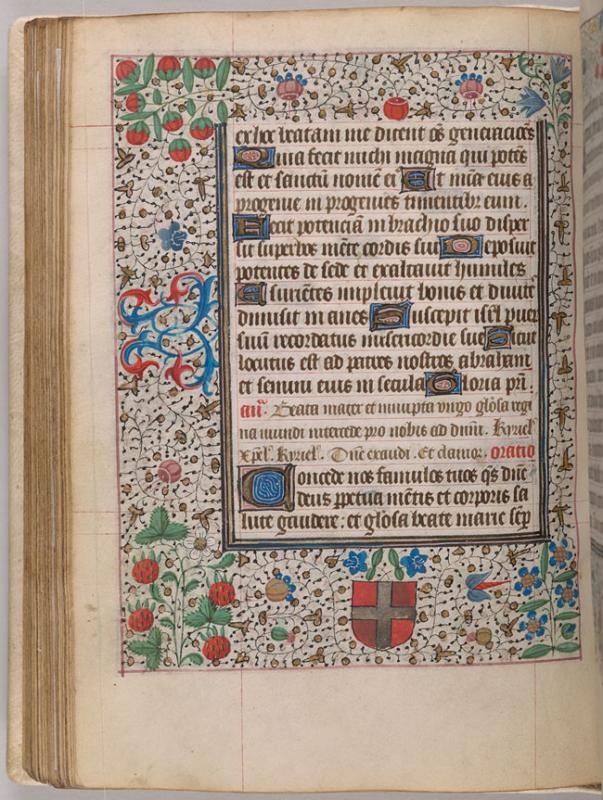 ex hoc beatam me dicent o͞s generacio͞es
Quia fecit michi magna qui pote͞s
est et sanctu͞ nome͞ ei Et mi͞a eius a
progenie in progenies timentibz eum.
Fecit potencia͞ in brachio suo disper
sit superbos me͞te cordis sui Deposuit
potentes de sede et exaltauit humiles
Esurie͞tes impleuit bonis et diuite͞
dimisit inanes Suscepit isrl͞ puer
suu͞ recordatus misericordie sue Sicut
locutus est ad patres nostros abraham
et semini eius in secula Gloria pri͞
an͞. Beata mater et innupta virgo glo͞sa regi
na mundi intercede pro nobis ad dnm͞. Kyriel͞
Xpel͞. Kyriel͞. Dne͞ exaudi. Et clamor. oratio
Concede nos famulos tuos q͞s dne͞
deus p͞petua me͞tis et corporis sa
lute gaudere: et glo͞sa beate marie sep͞